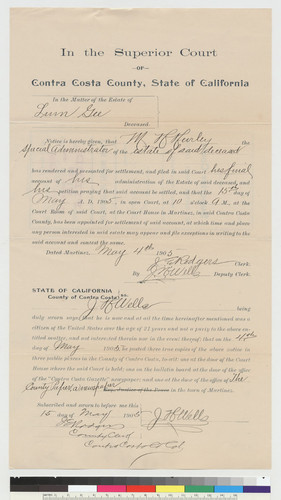 In the Superior Court
OF
Contra Costa County, State of California
In the Matter of the Estate of
Deceased.
Notice is hereby given, that M the
Special Administrator of the estate of said deceased
has rendered and presented for settlement, and filed in said Court his final
account of his administration of the Estate of said deceased, and
his petition praying that said account be settled, and that the 15th day of
May A. D. 1905, in open Court, at 10 o'clock A. M., at the
Court Room of said Court, at the Court House in Martinez, in said Contra Costa
County, has been appointed for settlement of said account, at which time and place
any person interested in said estate may appear and file exceptions in writing to the
said account and contest the same.
Dated Martinez, May 4th 1905
J. E. Rodgers Clerk.
By J. H. Wells Deputy Clerk.
STATE OF CALIFORNIA
County of Contra Costa ss
J H Wells being
duly sworn says: that he is now and at all the time hereinafter mentioned was a
citizen of the United States over the age of 21 years and not a party to the above
entitled matter, and not interested therein or in the event thereof; that on the 4th
day of May 1905 he posted three true copies of the above notice in
three public places in the County of Contra Costa, to wit: one at the door of the Court
House where the said Court is held; one on bulletin board at the door of the office
of the "Contra Costa Gazette" newspaper; and one at the door of the office of The
County in the town of Martinez.
Subscribed and sworn to before me this
15 day May 1905 J H Wells
J E Rodgers
County Clerk
Contra Costa Co Cal